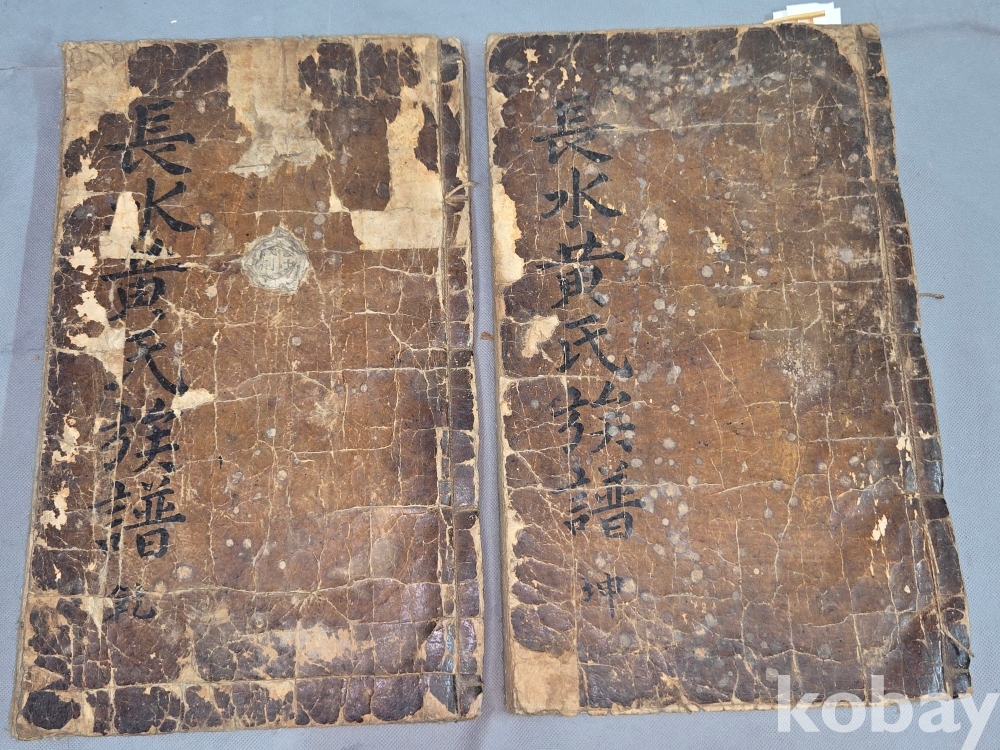 長水黃氏族譜
乾
長水黃氏族譜
坤
kobay